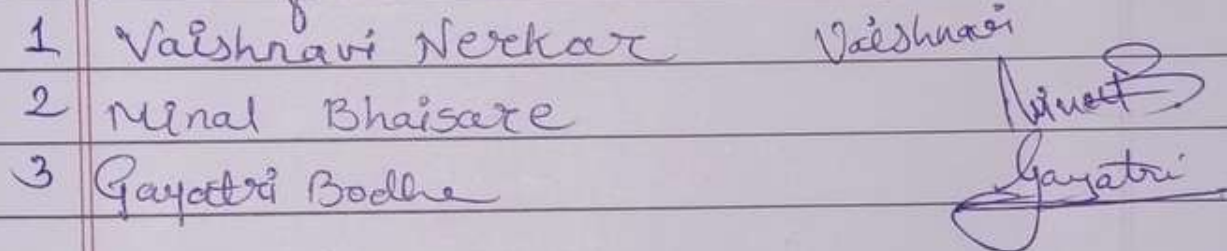 1 Vaishnavi Nerkar Vaishnavi
2 Minal Bhaisare MinalB
3 Gayatri Bodhe Gayatri